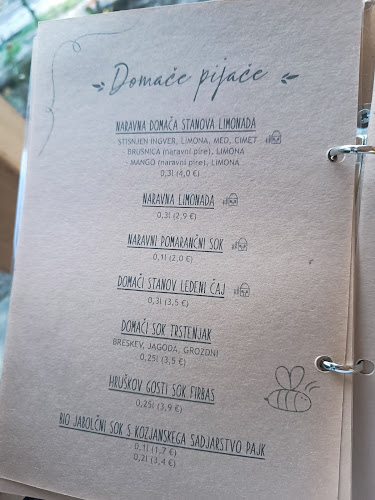 Domače pijače
NARAVNA DOMAČA STANOVA LIMONADA
STISNJEN INGVER, LIMONA, MED, CIMET
- BRUSNICA (naravni pire), LIMONA
- MANGO (naravni pire), LIMONA
0,3l (4,0 €)
NARAVNA LIMONADA
0,3l (2,9 €)
NARAVNI POMARANČNI SOK
0,1l (2,0 €)
DOMAČI STANOV LEDENI ČAJ
0,3l (3,5 €)
DOMAČI SOK TRSTENJAK
BRESKEV, JAGODA, GROZDNI
0,25l (3,5 €)
HRUŠKOV GOSTI SOK FIRBAS
0,25l (3,9 €)
BIO JABOLČNI SOK S KOZJANSKEGA SADJARSTVO PAJK
0,1l (1,7 €)
0,2l (3,4 €)